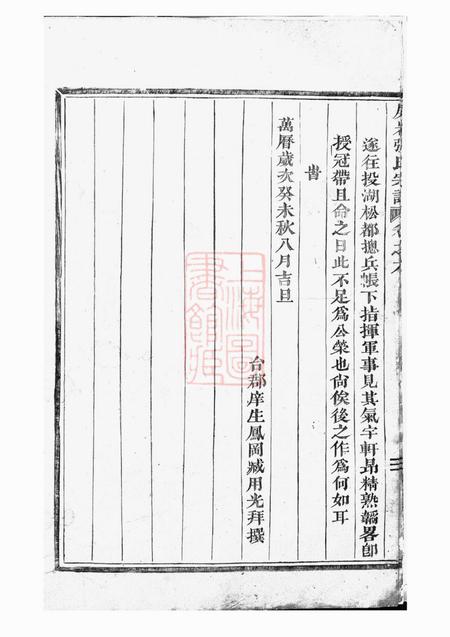 張氏宗譜
遂往投湖松都總兵帳下指揮軍事見其氣宇軒昂精熟韜畧卽
授冠帶且命之曰此不足爲公榮也尙俟後之作爲何如耳
旹
萬曆歲次癸未秋八月吉旦
台郡庠生鳳岡臧用光拜撰
上海圖
書館藏